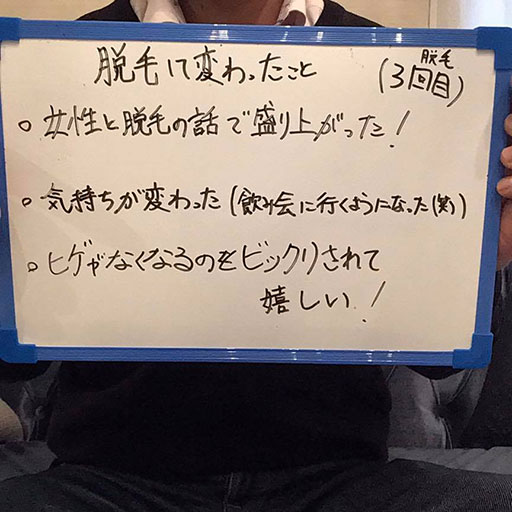 脱毛して変わったこと
脱毛
(3回目)
○ 女性と脱毛の話で盛り上がった!
○ 気持ちが変わった(飲み会に行くようになった(笑)
○ ヒゲがなくなるのをビックリされて
嬉しい!